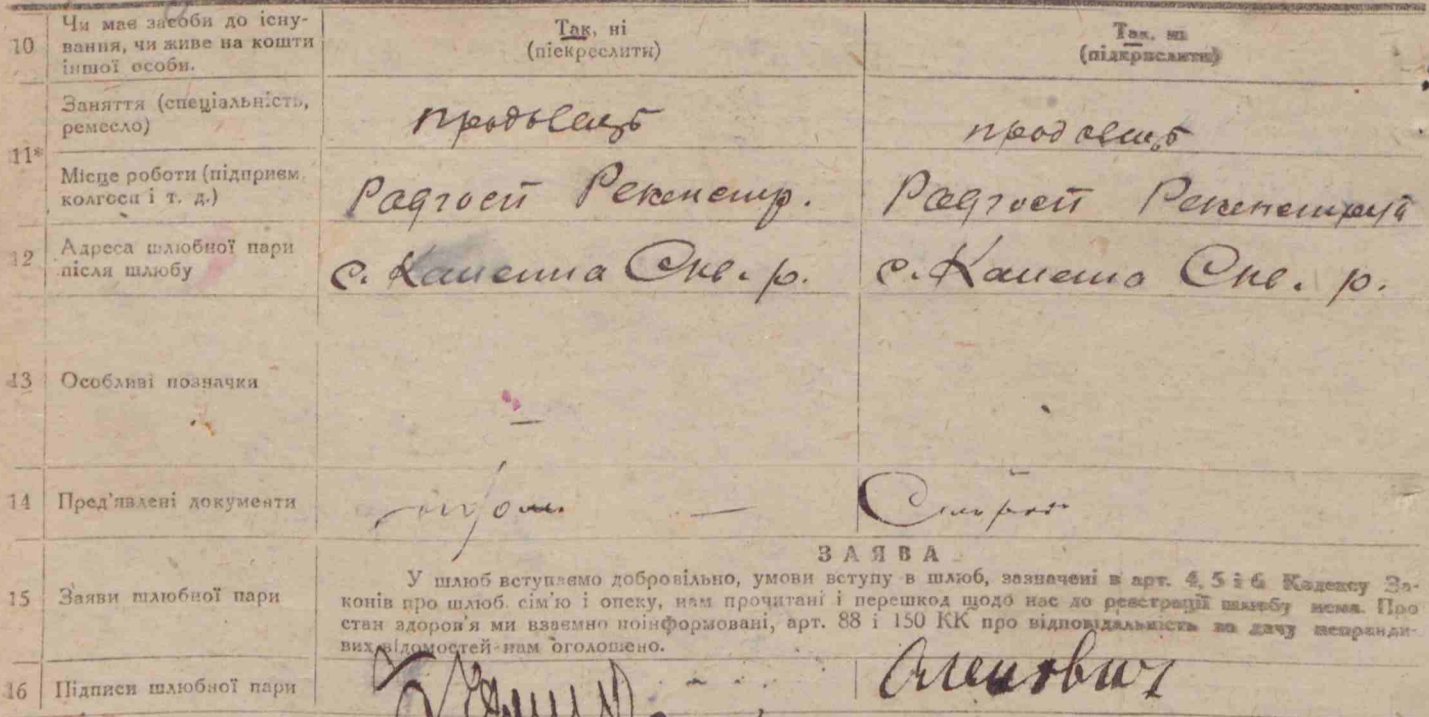 10 Чи має засоби до існування, чи живе на кошти іншої особи.
Так, ні
(піекреслити)
Так, ні
(підкрислити)
11* Заняття (спеціальність, ремесло)
продавець
продавець
Місце роботи (підприєм. колгосп і т. д.)
Радгосп
Радгосп
12 Адреса шлюбної пари після шлюбу
с. Скв. р.
с. Скв. р.
13 Особливі позначки
—
14 Пред'явлені документи
—
ЗАЯВА
15 Заяви шлюбної пари
У шлюб вступаємо добровільно, умови вступу в шлюб, зазначені в арт. 4, 5 і 6 Кодексу За-
конів про шлюб. сім'ю і опеку, нам прочитані і перешкод щодо нас до реєстрації шлюбу нема. Про
стан здоров'я ми взаємно поінформовані, арт. 88 і 150 КК про відповідальність за дачу неправди-
вих відомостей нам оголошено.
16 Підписи шлюбної пари